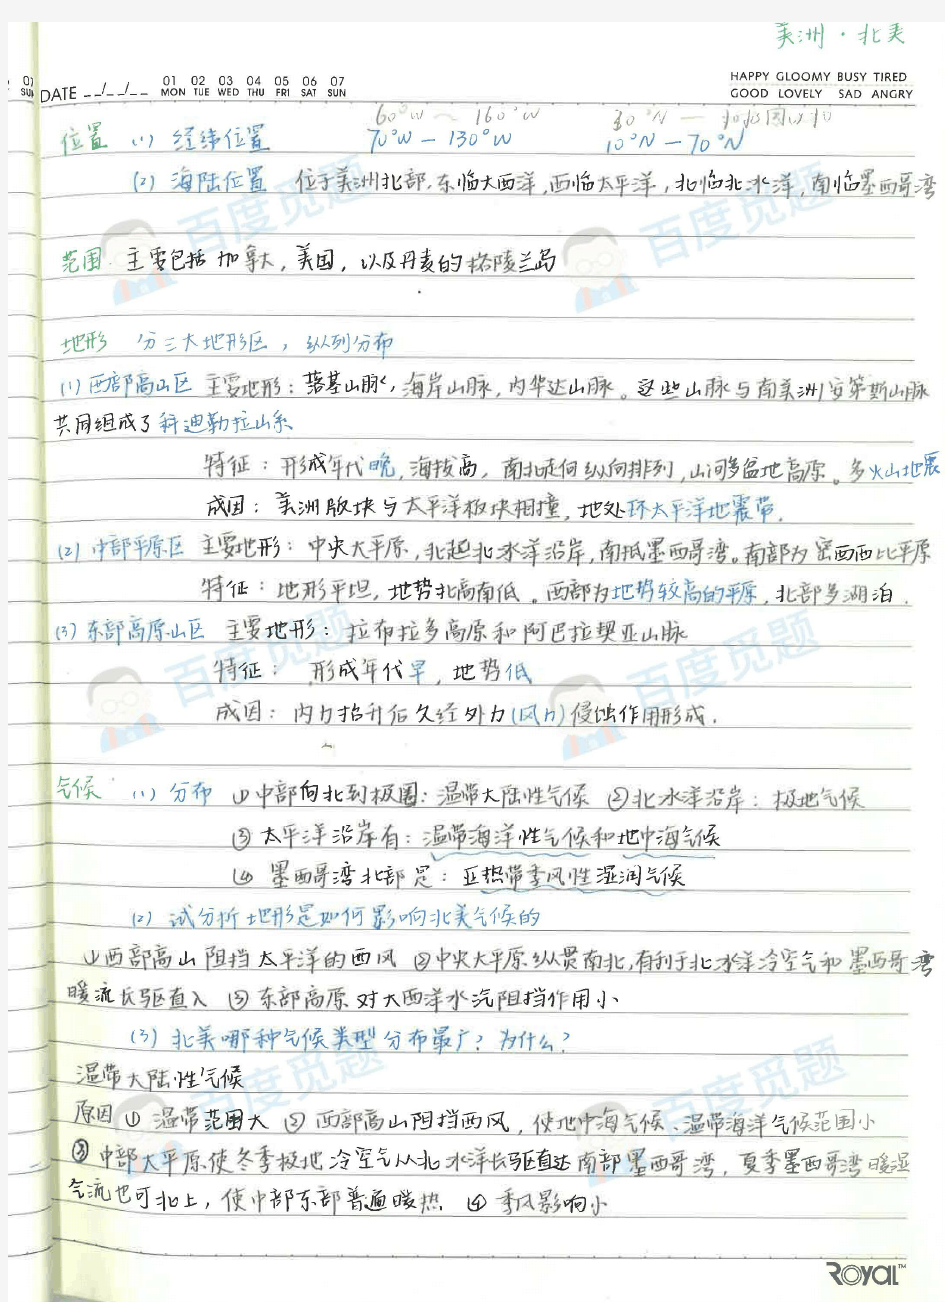 美洲·北美
DATE __/__/__ 01 MON 02 TUE 03 WED 04 THU 05 FRI 06 SAT 07 SUN
HAPPY GLOOMY BUSY TIRED
GOOD LOVELY SAD ANGRY
60°W ~ 160°W 30°N — 北极圈以北
位置 (1) 经纬位置 70°W — 130°W 10°N — 70°N
(2) 海陆位置 位于美洲北部,东临大西洋,西临太平洋,北临北冰洋,南临墨西哥湾
范围 主要包括加拿大,美国,以及丹麦的格陵兰岛
地形 分三大地形区,纵列分布
(1) 西部高山区 主要地形:落基山脉,海岸山脉,内华达山脉。这些山脉与南美洲安第斯山脉
共同组成了科迪勒拉山系
特征:形成年代晚,海拔高,南北走向纵向排列,山间多盆地高原。多火山地震
成因:美洲版块与太平洋板块相撞,地处环太平洋地震带.
(2) 中部平原区 主要地形:中央大平原,北起北冰洋沿岸,南抵墨西哥湾。南部为密西西比平原
特征:地形平坦,地势北高南低。西部为地势较高的平原,北部多湖泊.
(3) 东部高原山区 主要地形:拉布拉多高原和阿巴拉契亚山脉
特征:形成年代早,地势低
成因:内力抬升后久经外力(风力)侵蚀作用形成.
气候 (1) 分布 ①中部向北到极圈:温带大陆性气候 ②北冰洋沿岸:极地气候
③太平洋沿岸有:温带海洋性气候和地中海气候
④墨西哥湾北部是:亚热带季风性湿润气候
(2) 试分析地形是如何影响北美气候的
①西部高山阻挡太平洋的西风 ②中央大平原纵贯南北,有利于北冰洋冷空气和墨西哥湾
暖流长驱直入 ③东部高原对大西洋水汽阻挡作用小
(3) 北美哪种气候类型分布最广?为什么?
温带大陆性气候
原因①温带范围大 ②西部高山阻挡西风,使地中海气候、温带海洋气候范围小
③中部大平原使冬季极地冷空气从北冰洋长驱直达南部墨西哥湾,夏季墨西哥湾暖湿
气流也可北上,使中部东部普遍暖热 ④季风影响小
ROYAL™
百度觅题
百度觅题
百度觅题
百度觅题
百度觅题
百度觅题